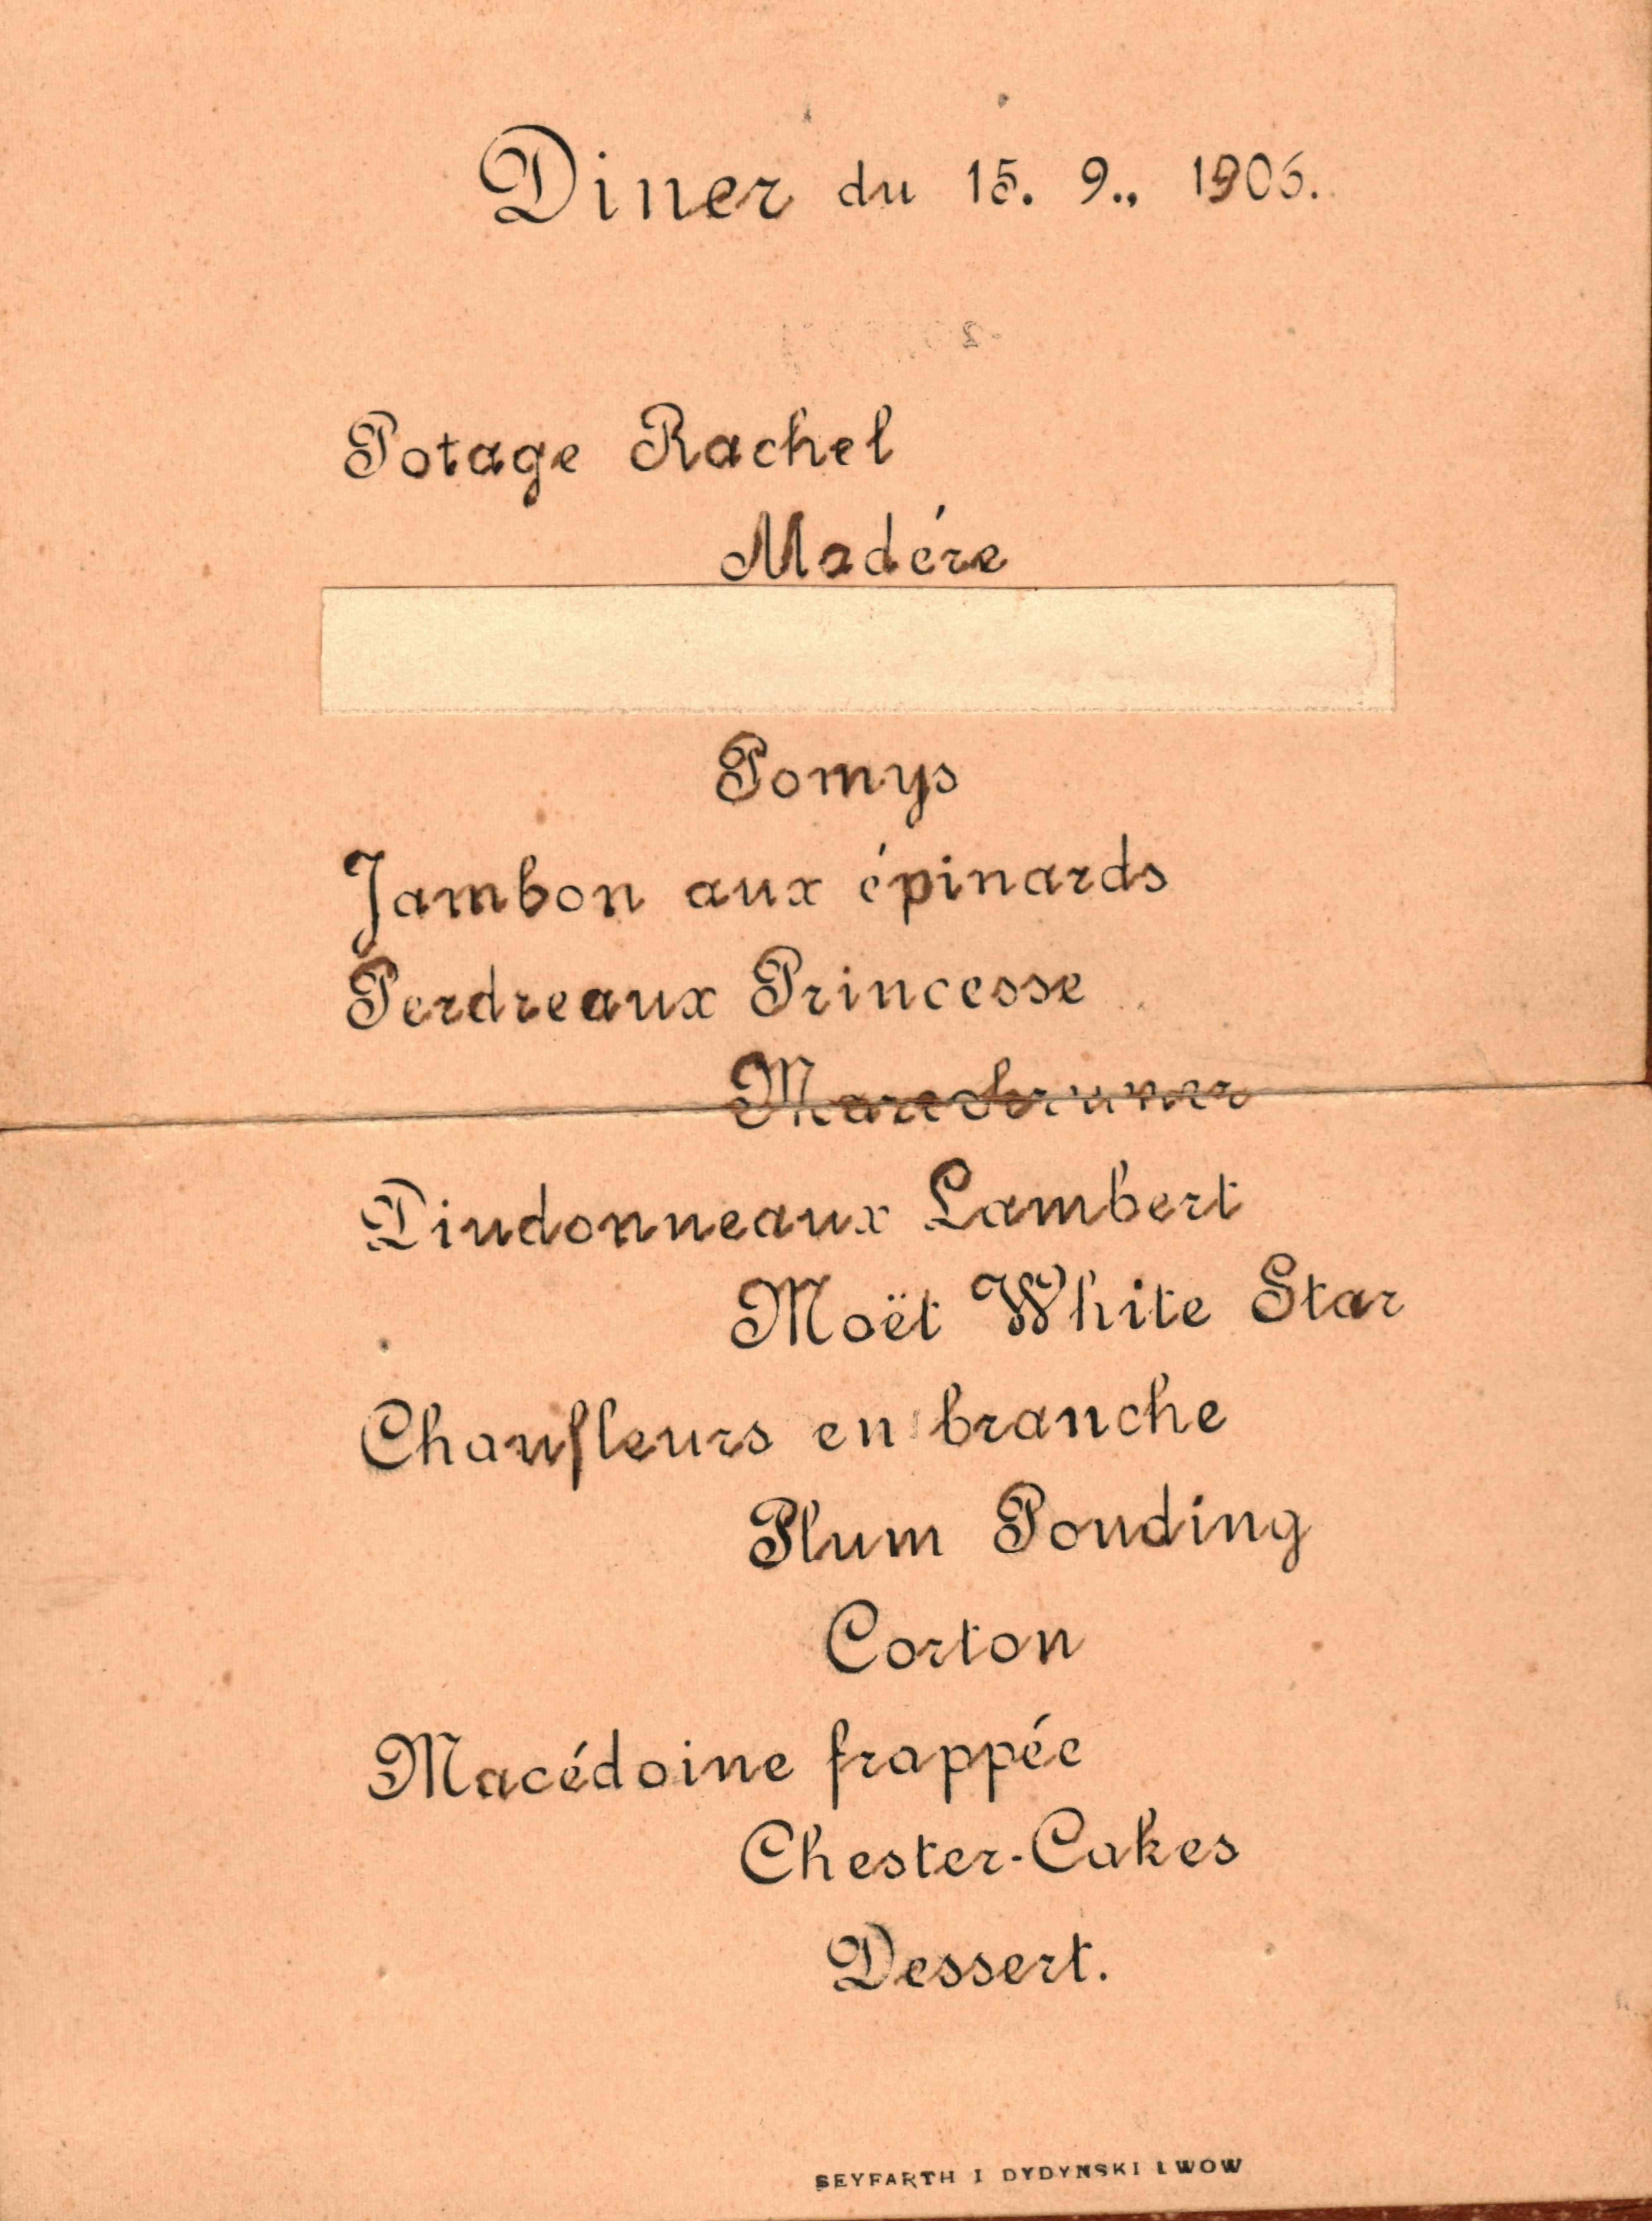 Diner du 15. 9., 1906.
Potage Rachel
Madére
Pomys
Jambon aux épinards
Perdreaux Princesse
Dindonneaux Lambert
Moët White Star
Choufleurs en branche
Plum Pouding
Corton
Macédoine frappée
Chester-Cakes
Dessert.
SEYFARTH I DYDYNSKI LWOW